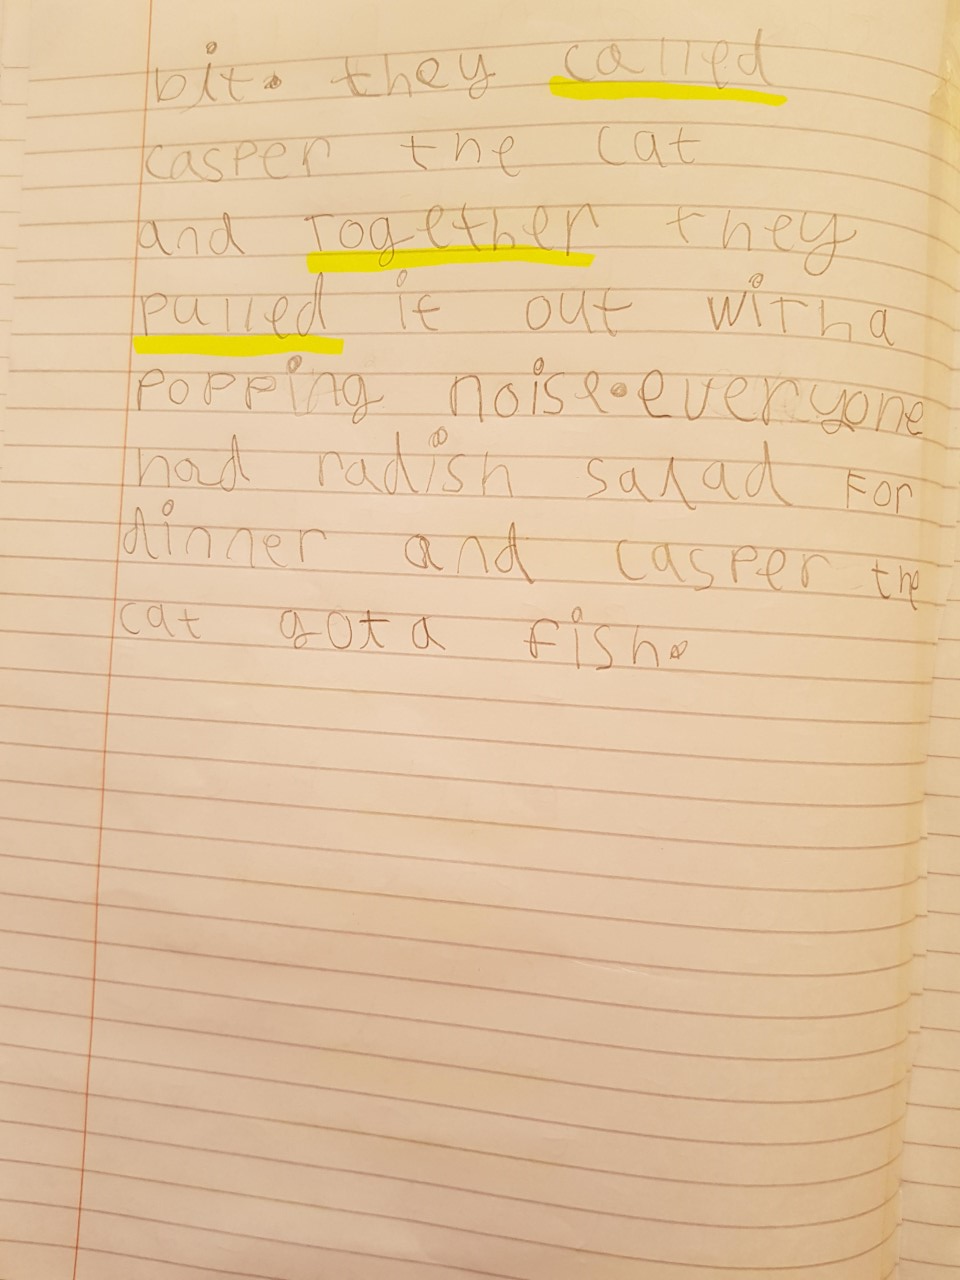 bit. they called
casper the cat
and Together they
pulled it out with a
popping noise.everyone
had radish salad For
dinner and casper the
cat got a fish.